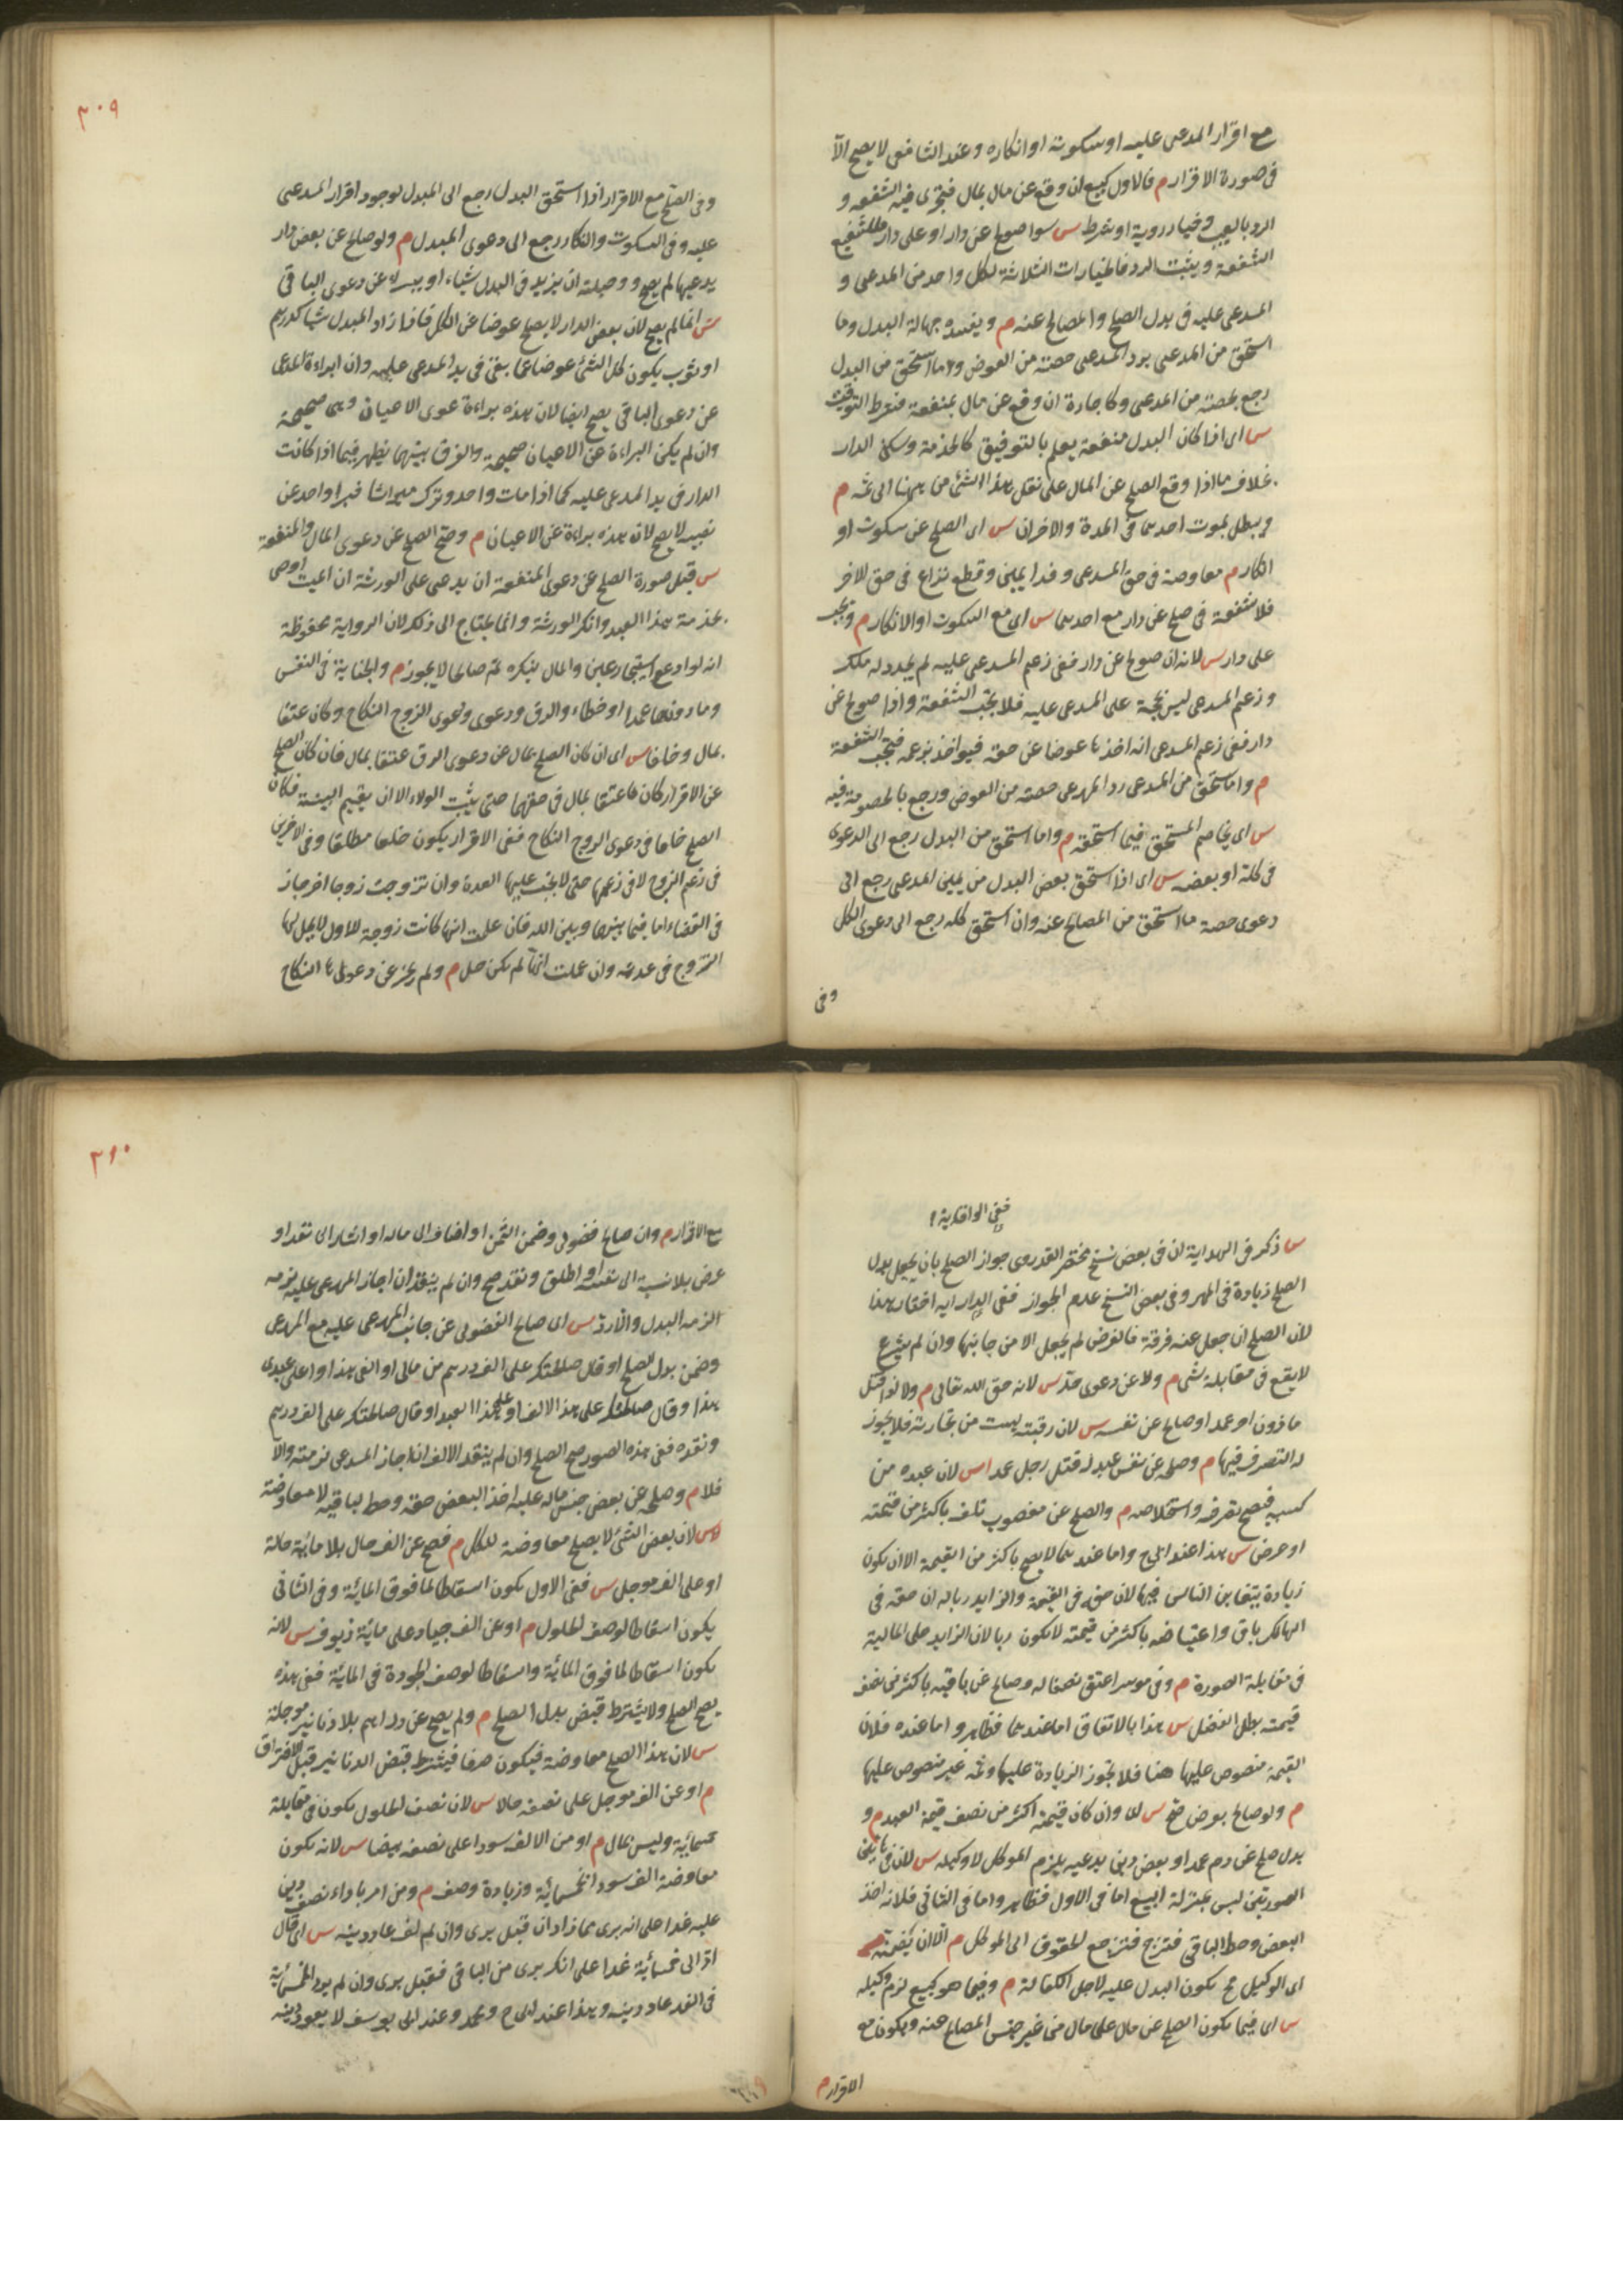 مع اقرار المدعى عليه او سكوته او انكاره وعند الشافعى لا يصح الا
فى صورة الاقرار م فالاول كبيع ان وقع عن مال بمال فتجرى فيه الشفعة و
الرد بالعيب وخيار روية او شرط س سوا صولح عن دار او على دار للشفيع
الشفعة ويثبت الرد فالخيارات الثلاثة لكل واحد من المدعى و
المدعى عليه فى بدل الصلح والمصالح عنه م ويفسده جهالة البدل وما
استحق من المدعى يرد المدعى حصته من العوض وما استحق من البدل
رجع بحصته من المدعى وكاجارة ان وقع عن مال بمنفعة فشرط التوقيت
س اى اذا كان البدل منفعة يعلم بالتوفيق كالخدمة وسكنى الدار
بخلاف ما اذا وقع الصلح عن المال على نقل هذا الشئ من ههنا الى ثمه م
ويبطل بموت احدهما فى المدة والاخران س اى الصلح عن سكوت او
انكار م معاوضة فى حق المدعى وفدا يمين وقطع نزاع فى حق الاخر
فلا شفعة فى صلح عن دار مع احدهما س اى مع السكوت او الانكار م وتجب
على دار س لانه ان صولح عن دار ففى زعم المدعى عليه لم يتجدد له ملك
وزعم المدعى ليس بحجة على المدعى عليه فلا تجب الشفعة واذا صولح عن
دار ففى زعم المدعى انه اخذها عوضا عن حقه فيواخذ بزعمه فتجب الشفعة
م وما استحق من المدعى رد المدعى حصته من العوض ورجع بالخصومة فيه
س اى يخاصم المستحق فيما استحقه م وما استحق من البدل رجع الى الدعوى
فى كله او بعضه س اى اذا استحق بعض البدل من يمين المدعى رجع الى
دعوى حصة ما استحق من المصالح عنه وان استحق كله رجع الى دعوى الكل
وفى
٣٠٩
وفى الصلح مع الاقرار اذا استحق البدل رجع الى المبدل لوجود اقرار المدعى
عليه وفى السكوت والنكار رجع الى دعوى المبدل م ولو صالح عن بعض دار
يدعيها لم يصح ووحيلته ان يزيد فى البدل شياء او يبريه عن دعوى الباقى
س انما لم يصح لان بعض الدار لا يصلح عوضا عن الكل فاذا زاد المبدل شيا كدرهم
او ثوب يكون كل الشئ عوضا عما بقى فى يد المدعى عليه وان ابراه المدعى
عن دعوى الباقى يصح ايضا لان هذه براءة عن دعوى الاعيان وهى صحيحة
وان لم يكن البراءة عن الاعيان صحيحة والفرق بينهما يظهر فيما اذا كانت
الدار فى يد المدعى عليه كما اذا مات واحد وترك ميراثا فبرا واحد عن
نصيبه لا يصح لان هذه براءة عن الاعيان م وصح الصلح عن دعوى المال والمنفعة
س قبل صورة الصلح عن دعوى المنفعة ان يدعى على الورثة ان الميت اوصى
بخدمة هذا العبد وانكر الورثة وانما يحتاج الى ذلك لان الرواية محفوظة
انه لو ادعى استيجار عين والمال ينكره ثم صالحا لا يجوز م والجناية فى النفس
وما دونها عمدا او خطاء والرق ودعوى الزوج النكاح وكان عتقا
بمال وخلعا س اى ان كان الصلح بمال عن دعوى الرق عتقا بمال فان كان الصلح
عن الاقرار كان عتقا بمال فى حقهما حتى يثبت الولاء الا ان يقيم البينة فكان
الصلح خلعا فى دعوى الزوج النكاح ففى الاقرار يكون خلعا مطلقا وفى الاخرين
فى زعم الزوج لا فى زعمها حتى لا تجب عليها العدة وان تزوجت زوجا اخر جاز
فى القضاء اما فيما بينها وبين الله فان علمت انها كانت زوجة للاول لا يحل لها
التزوج فى عدته وان علمت انها لم تكن حل م ولم يجز عن دعواها النكاح
ففى الوافدية
س ذكر فى الهداية ان فى بعض نسخ مختصر القدورى جواز الصلح بان يجعل بدل
الصلح زيادة فى المهر وفى بعض النسخ عدم الجواز ففى الهداية اختار هذا
لان الصلح ان جعل عنه فرقة فالعوض لم يجعل الا من جانبها وان لم يشرع
لا يقع فى مقابلة شى م ولا عن دعوى حد س لانه حق الله تعالى م ولا لو قتل
ماذون اخر عمدا وصالح عن نفسه س لان رقبته ليست من تجارته فلا يجوز
له التصرف فيها م وصلحه عن نفس عبد له قتل رجلا عمدا س لان عبده من
كسبه فيصح تصرفه واستخلاصه م والصلح عن مغصوب تلف باكثر من قيمته
او عرض س هذا عند ابى ح واما عندهما لا يصح باكثر من القيمة الا ان يكون
زيادة يتغابن الناس فيها لان حقه فى القيمة والزايد ربا له ان حقه فى
الهالك باق واعتياضه باكثر من قيمته لا يكون ربا لان الزايد على المالية
فى مقابلة الصورة م وفى موسر اعتق نصفا له وصالح عن باقيه باكثر من نصف
قيمته بطل الفضل س هذا بالاتفاق اما عندهما فظاهر واما عنده فلان
القيمة منصوص عليها هنا فلا تجوز الزيادة عليها وثمه غير منصوص عليها
م ولو صالح بعرض صح س لان وان كان قيمته اكثر من نصف قيمة العبد م و
بدل صلح عن دم عمد او بعض دين يدعيه يلزم الموكل لا وكيله س لان فى هاتين
الصورتين ليس بمنزلة البيع اما فى الاول فظاهر واما فى الثانى فلانه اخذ
البعض وحط الباقى فترجع الحقوق الى الموكل م الا ان يضمنه س
اى الوكيل ح يكون البدل عليه لاجل الكفالة م وفيما هو كبيع لزم وكيله
س اى فيما يكون الصلح عن مال على مال من غير جنس المصالح عنه ويكون مع
الاقرار م
٣١٠
مع الاقرار م وان صالح فضولى وضمن الثمن او اضاف الى ماله او اشار الى نقد او
عرض بلا نسبة الى نفسه او اطلق ونقد صح وان لم ينقد ان اجاز المدعى عليه لزمه
الزمه البدل والا رد س اى صالح الفضولى عن جانب المدعى عليه مع المدعى
وضمن بدل الصلح او قال صالحتك على الف درهم من مالى او الفى هذا او على عبدى
هذا وقال صالحتك على هذا الالف او على هذا العبد او قال صالحتك على الف درهم
ونقده ففى هذه الصور صح الصلح وان لم ينقد الالف ان اجاز المدعى لزمته والا
فلا م وصلحه عن بعض جنس ماله عليه اخذ البعض حقه وحط لباقيه لا معاوضة
س لان بعض الشئ لا يصلح معاوضة للكل م فصح عن الف حال بلا مائة حالة
او على الف موجل س ففى الاول يكون اسقاطا لما فوق المائة وفى الثانى
يكون اسقاطا لوصف الحلول م او عن الف جياد على مائة زيوف س لانه
يكون اسقاطا لما فوق المائة واسقاطا لوصف الجودة فى المائة ففى هذه
يصح الصلح ولا يشترط قبض بدل الصلح م ولم يصح عن دراهم بلا دنانير موجلة
س لان هذا الصلح معاوضة فيكون صرفا فيشترط قبض الدنانير قبل الافتراق
م او عن الف موجل على نصفه حالا س لان نصف الحلول يكون فى مقابلة
خمسمائة وليس بمال م او من الالف سودا على نصفه بيضا س لانه يكون
معاوضة الف سود الخمسمائة وزيادة وصف م ومن امر باداء نصف دين
عليه غدا على انه برى مما زاد ان قبل برى وان لم يف عاد دينه س اى قال
اد الى خمسمائة غدا على انك برى من الباقى فقبل برى وان لم يود الخمسمائة
فى الغد عاد دينه وهذا عند ابى ح ومحمد وعند ابى يوسف لا يعود دينه